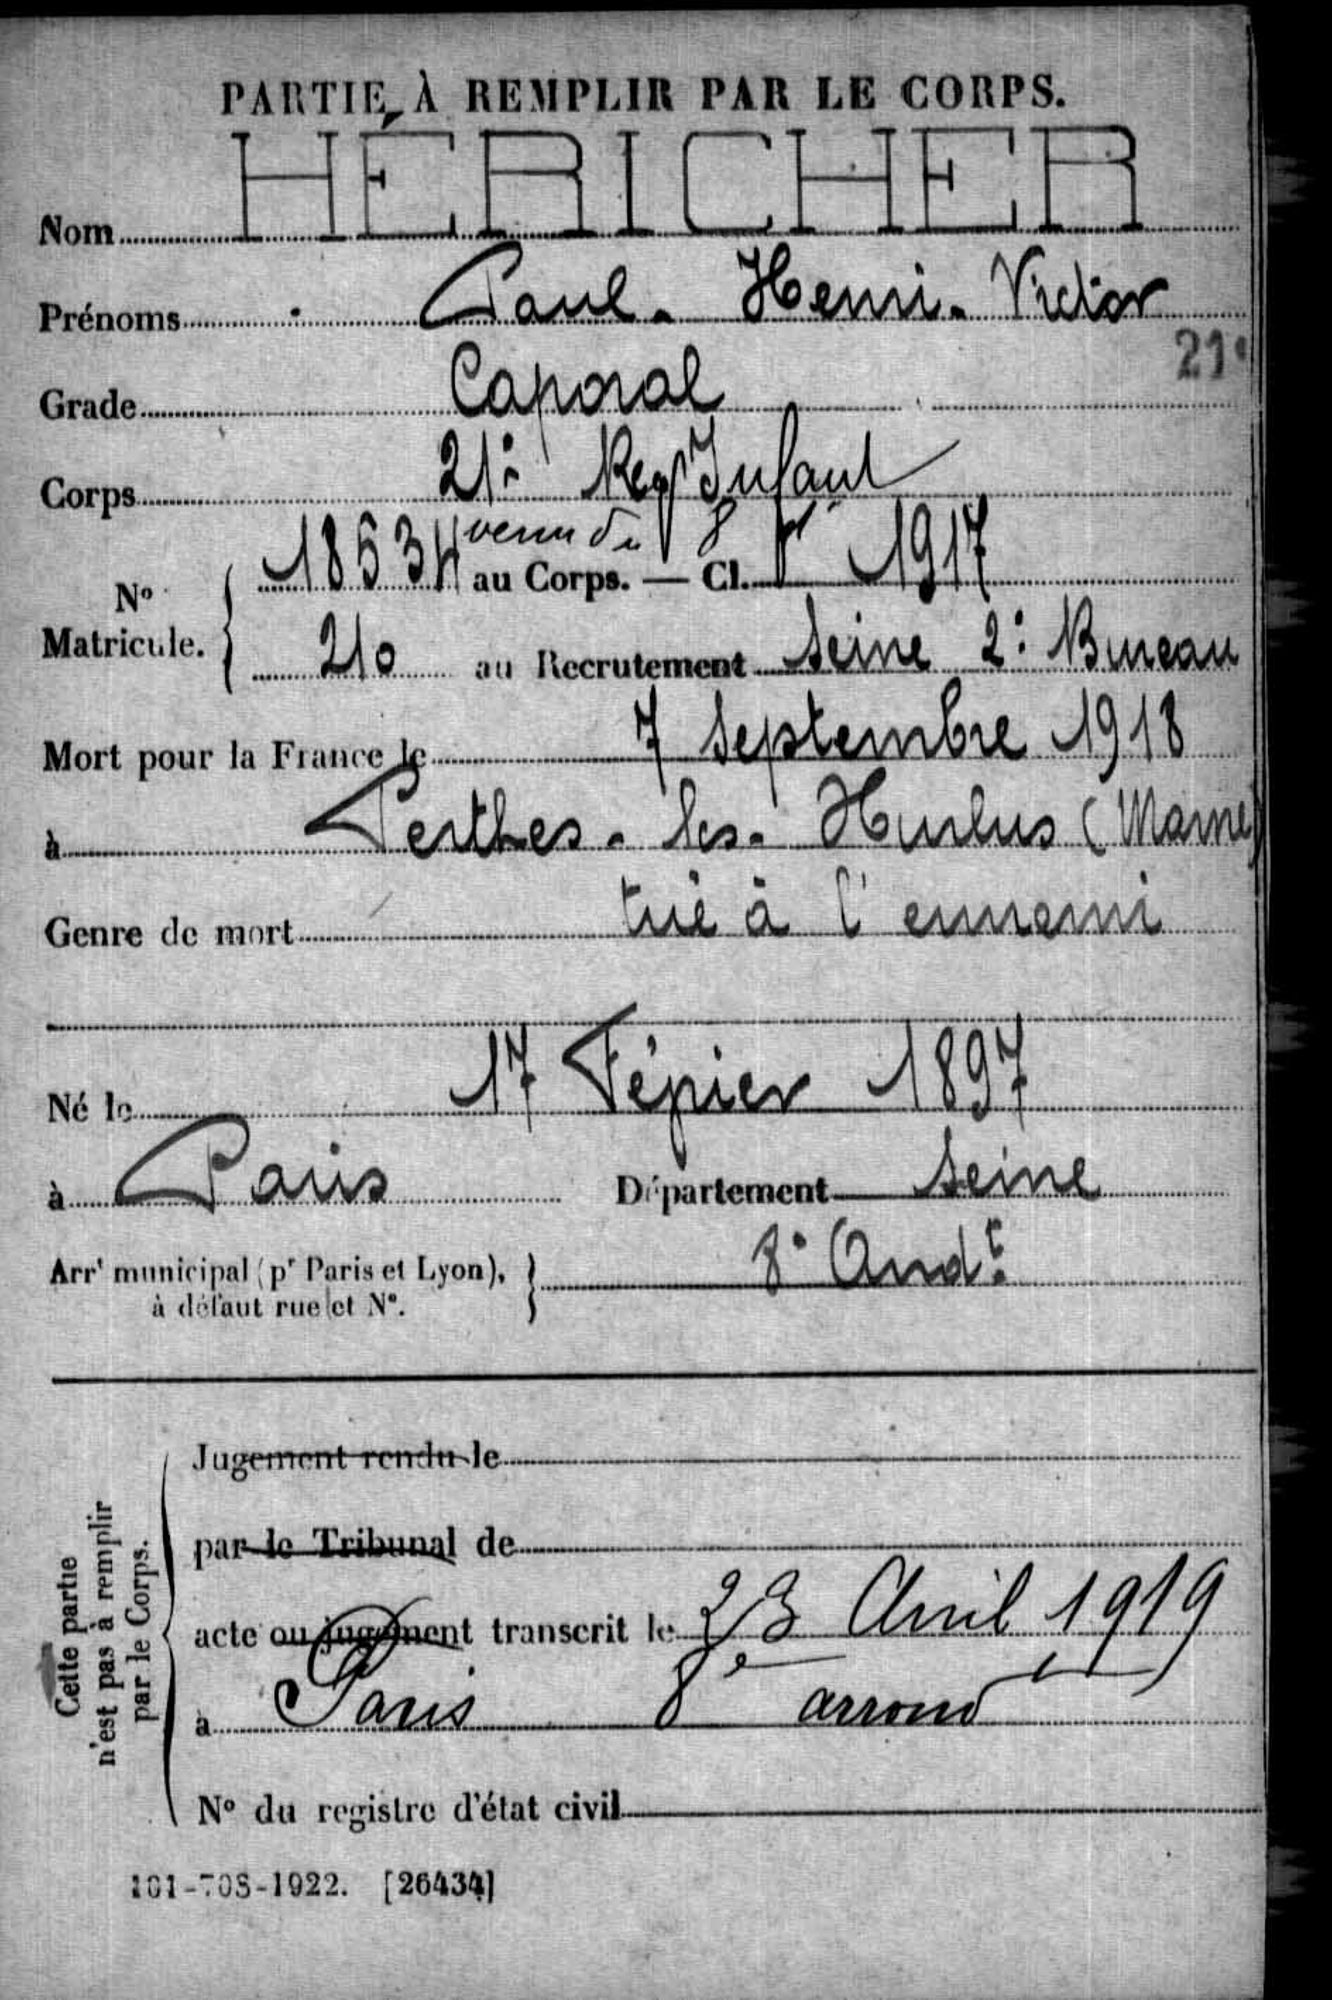 PARTIE À REMPLIR PAR LE CORPS.
Nom HÉRICHER
Prénoms Paul. Henri. Victor
21e
Grade Caporal
Corps 21e Regt Infant
venu du 8
No Matricule. 18534 au Corps. — Cl. 1917
210 au Recrutement Seine 2e Bureau
Mort pour la France le 7 Septembre 1918
à Perthes. les. Hurlus (Marne)
Genre de mort tué à l'ennemi
Né le 17 Février 1897
à Paris Département Seine
Arrt municipal (pr Paris et Lyon), à défaut rue et No. 8e Arrdt
Cette partie n'est pas à remplir par le Corps.
Jugement rendu le
par le Tribunal de
acte ou jugement transcrit le 23 Avril 1919
à Paris 8e arrond
No du registre d'état civil
101-708-1922. [26434]